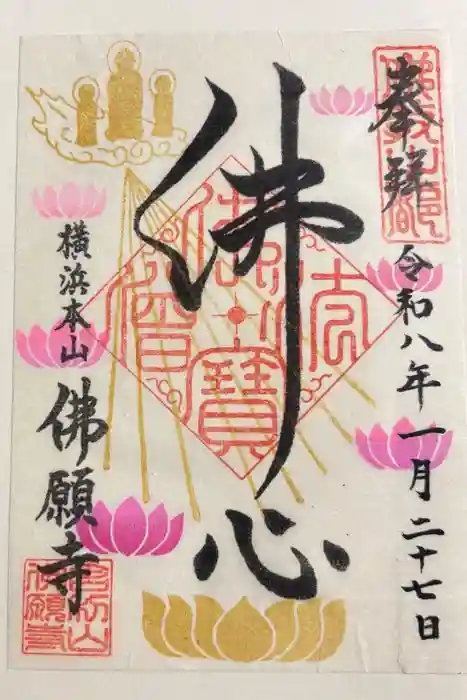 奉拝
令和八年一月二十七日
佛心
佛法僧寳
横浜本山
佛願寺